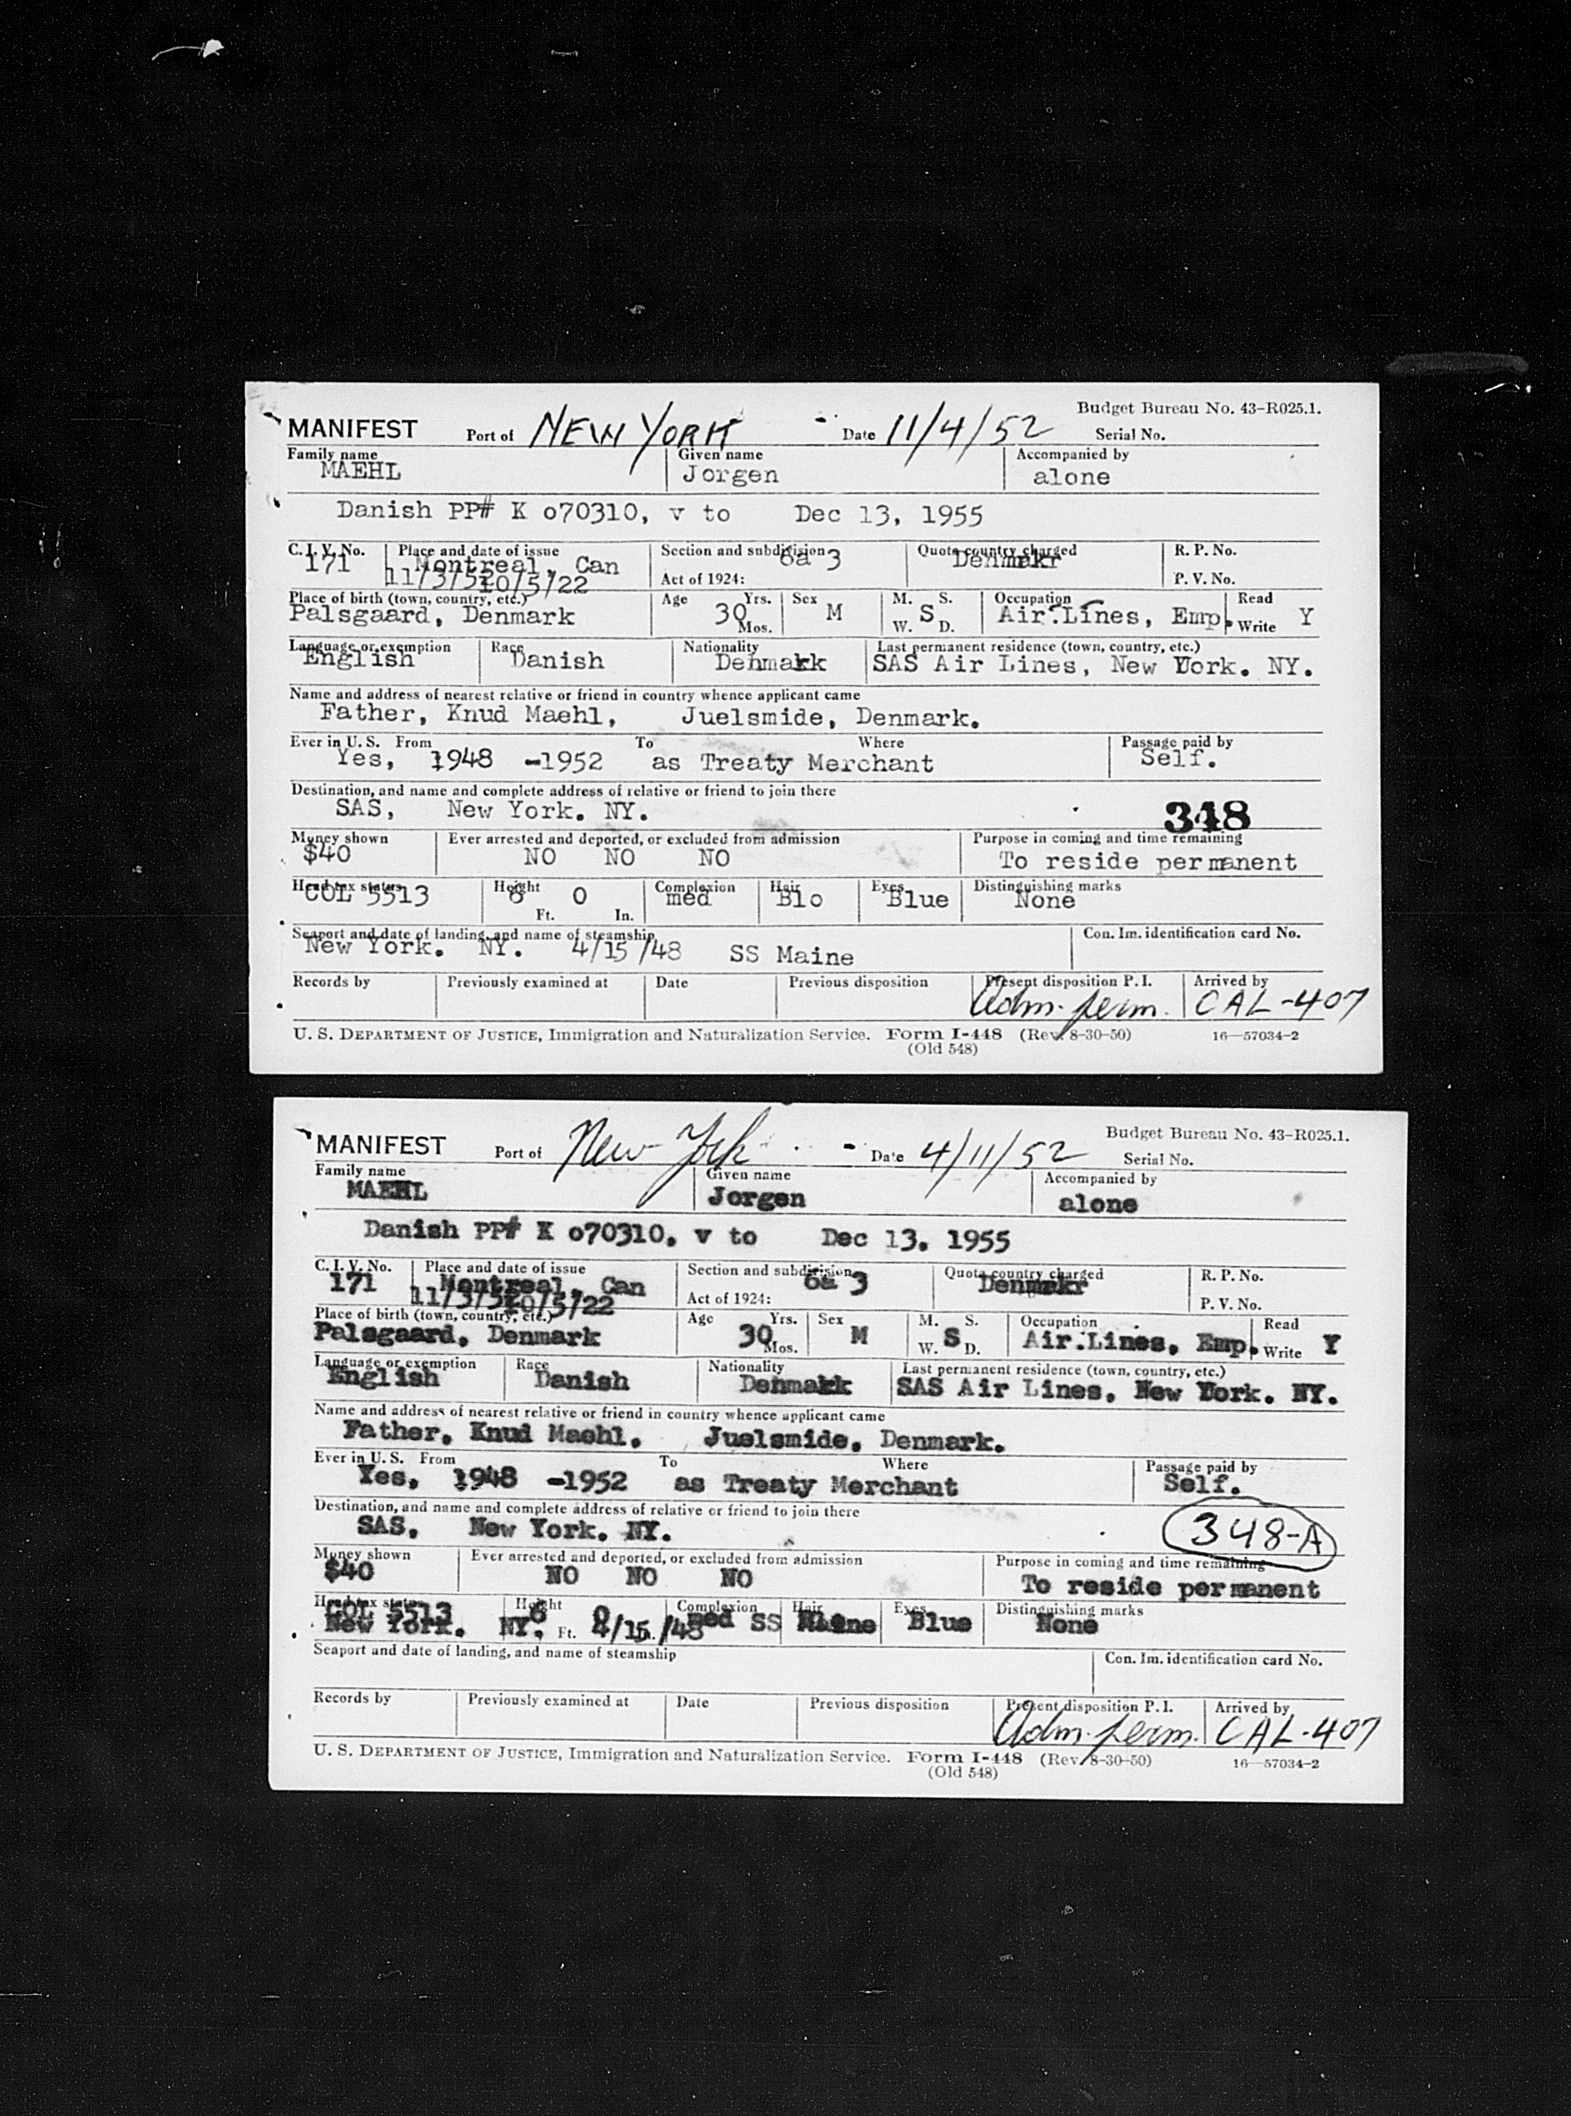 Budget Bureau No. 43-R025.1.
MANIFEST Port of NEW YORK Date 11/4/52 Serial No.
Family name Given name Accompanied by
MAEHL Jorgen alone
Danish PP# K o70310, v to Dec 13, 1955
C. I. V. No. Place and date of issue Section and subdivision Quota country charged R. P. No.
171 Montreal, Can 6a 3 Denmrkr
11/3/52 10/5/22 Act of 1924: P. V. No.
Place of birth (town, country, etc.) Age Yrs. Sex M. S. Occupation Read
Palsgaard, Denmark 30 M S Air Lines, Emp. Y
Mos. W. D. Write
Language or exemption Race Nationality Last permanent residence (town, country, etc.)
English Danish Denmakk SAS Air Lines, New York. NY.
Name and address of nearest relative or friend in country whence applicant came
Father, Knud Maehl, Juelsmide, Denmark.
Ever in U. S. From To Where Passage paid by
Yes, 1948 -1952 as Treaty Merchant Self.
Destination, and name and complete address of relative or friend to join there
SAS, New York. NY. 348
Money shown Ever arrested and deported, or excluded from admission Purpose in coming and time remaining
$40 NO NO NO To reside permanent
Head tax status Height Complexion Hair Eyes Distinguishing marks
COL 5513 6 0 med Blo Blue None
Ft. In.
Seaport and date of landing, and name of steamship Con. Im. identification card No.
New York. NY. 4/15/48 SS Maine
Records by Previously examined at Date Previous disposition Present disposition P. I. Arrived by
Adm. perm. CAL-407
U. S. DEPARTMENT OF JUSTICE, Immigration and Naturalization Service. Form I-448 (Rev. 8-30-50) 16—57034-2
(Old 548)
Budget Bureau No. 43-R025.1.
MANIFEST Port of New York Date 4/11/52 Serial No.
Family name Given name Accompanied by
MAEHL Jorgen alone
Danish PP# K o70310, v to Dec 13, 1955
C. I. V. No. Place and date of issue Section and subdivision Quota country charged R. P. No.
171 Montreal, Can 6a 3 Denmrkr
11/3/52 10/5/22 Act of 1924: P. V. No.
Place of birth (town, country, etc.) Age Yrs. Sex M. S. Occupation Read
Palsgaard, Denmark 30 M S Air Lines, Emp. Y
Mos. W. D. Write
Language or exemption Race Nationality Last permanent residence (town, country, etc.)
English Danish Denmakk SAS Air Lines, New York. NY.
Name and address of nearest relative or friend in country whence applicant came
Father, Knud Maehl, Juelsmide, Denmark.
Ever in U. S. From To Where Passage paid by
Yes, 1948 -1952 as Treaty Merchant Self.
Destination, and name and complete address of relative or friend to join there
SAS, New York. NY. 348-A
Money shown Ever arrested and deported, or excluded from admission Purpose in coming and time remaining
$40 NO NO NO To reside permanent
Head tax status Height Complexion Hair Eyes Distinguishing marks
COL 5513 6 0 med Blue None
New York. NY. Ft. 4/15/48 SS Maine
Seaport and date of landing, and name of steamship Con. Im. identification card No.
Records by Previously examined at Date Previous disposition Present disposition P. I. Arrived by
Adm. perm. CAL-407
U. S. DEPARTMENT OF JUSTICE, Immigration and Naturalization Service. Form I-448 (Rev. 8-30-50) 16—57034-2
(Old 548)